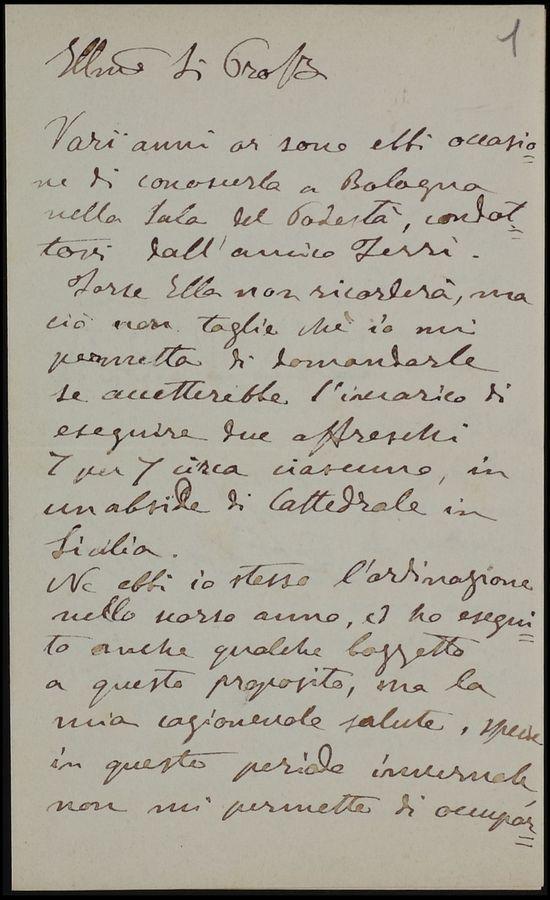 1
Illmo Si Profre
Varii anni or sono ebbi occasio=
ne di conoscerla a Bologna
nella Sala del Podestà, condot=
tovi dall'amico Ferri.
Forse Ella non ricorderà, ma
ciò non toglie che io mi
permetta di domandarle
se accetterebbe l'incarico di
eseguire due affreschi
7 per 7 circa ciascuno, in
un abside di Cattedrale in
Sicilia.
Ne ebbi io stesso l'ordinazione
nello scorso anno, ed ho esegui=
to anche qualche bozzetto
a questo proposito, ma la
mia cagionevole salute, specie
in questo periodo invernale
non mi permette di occupar=